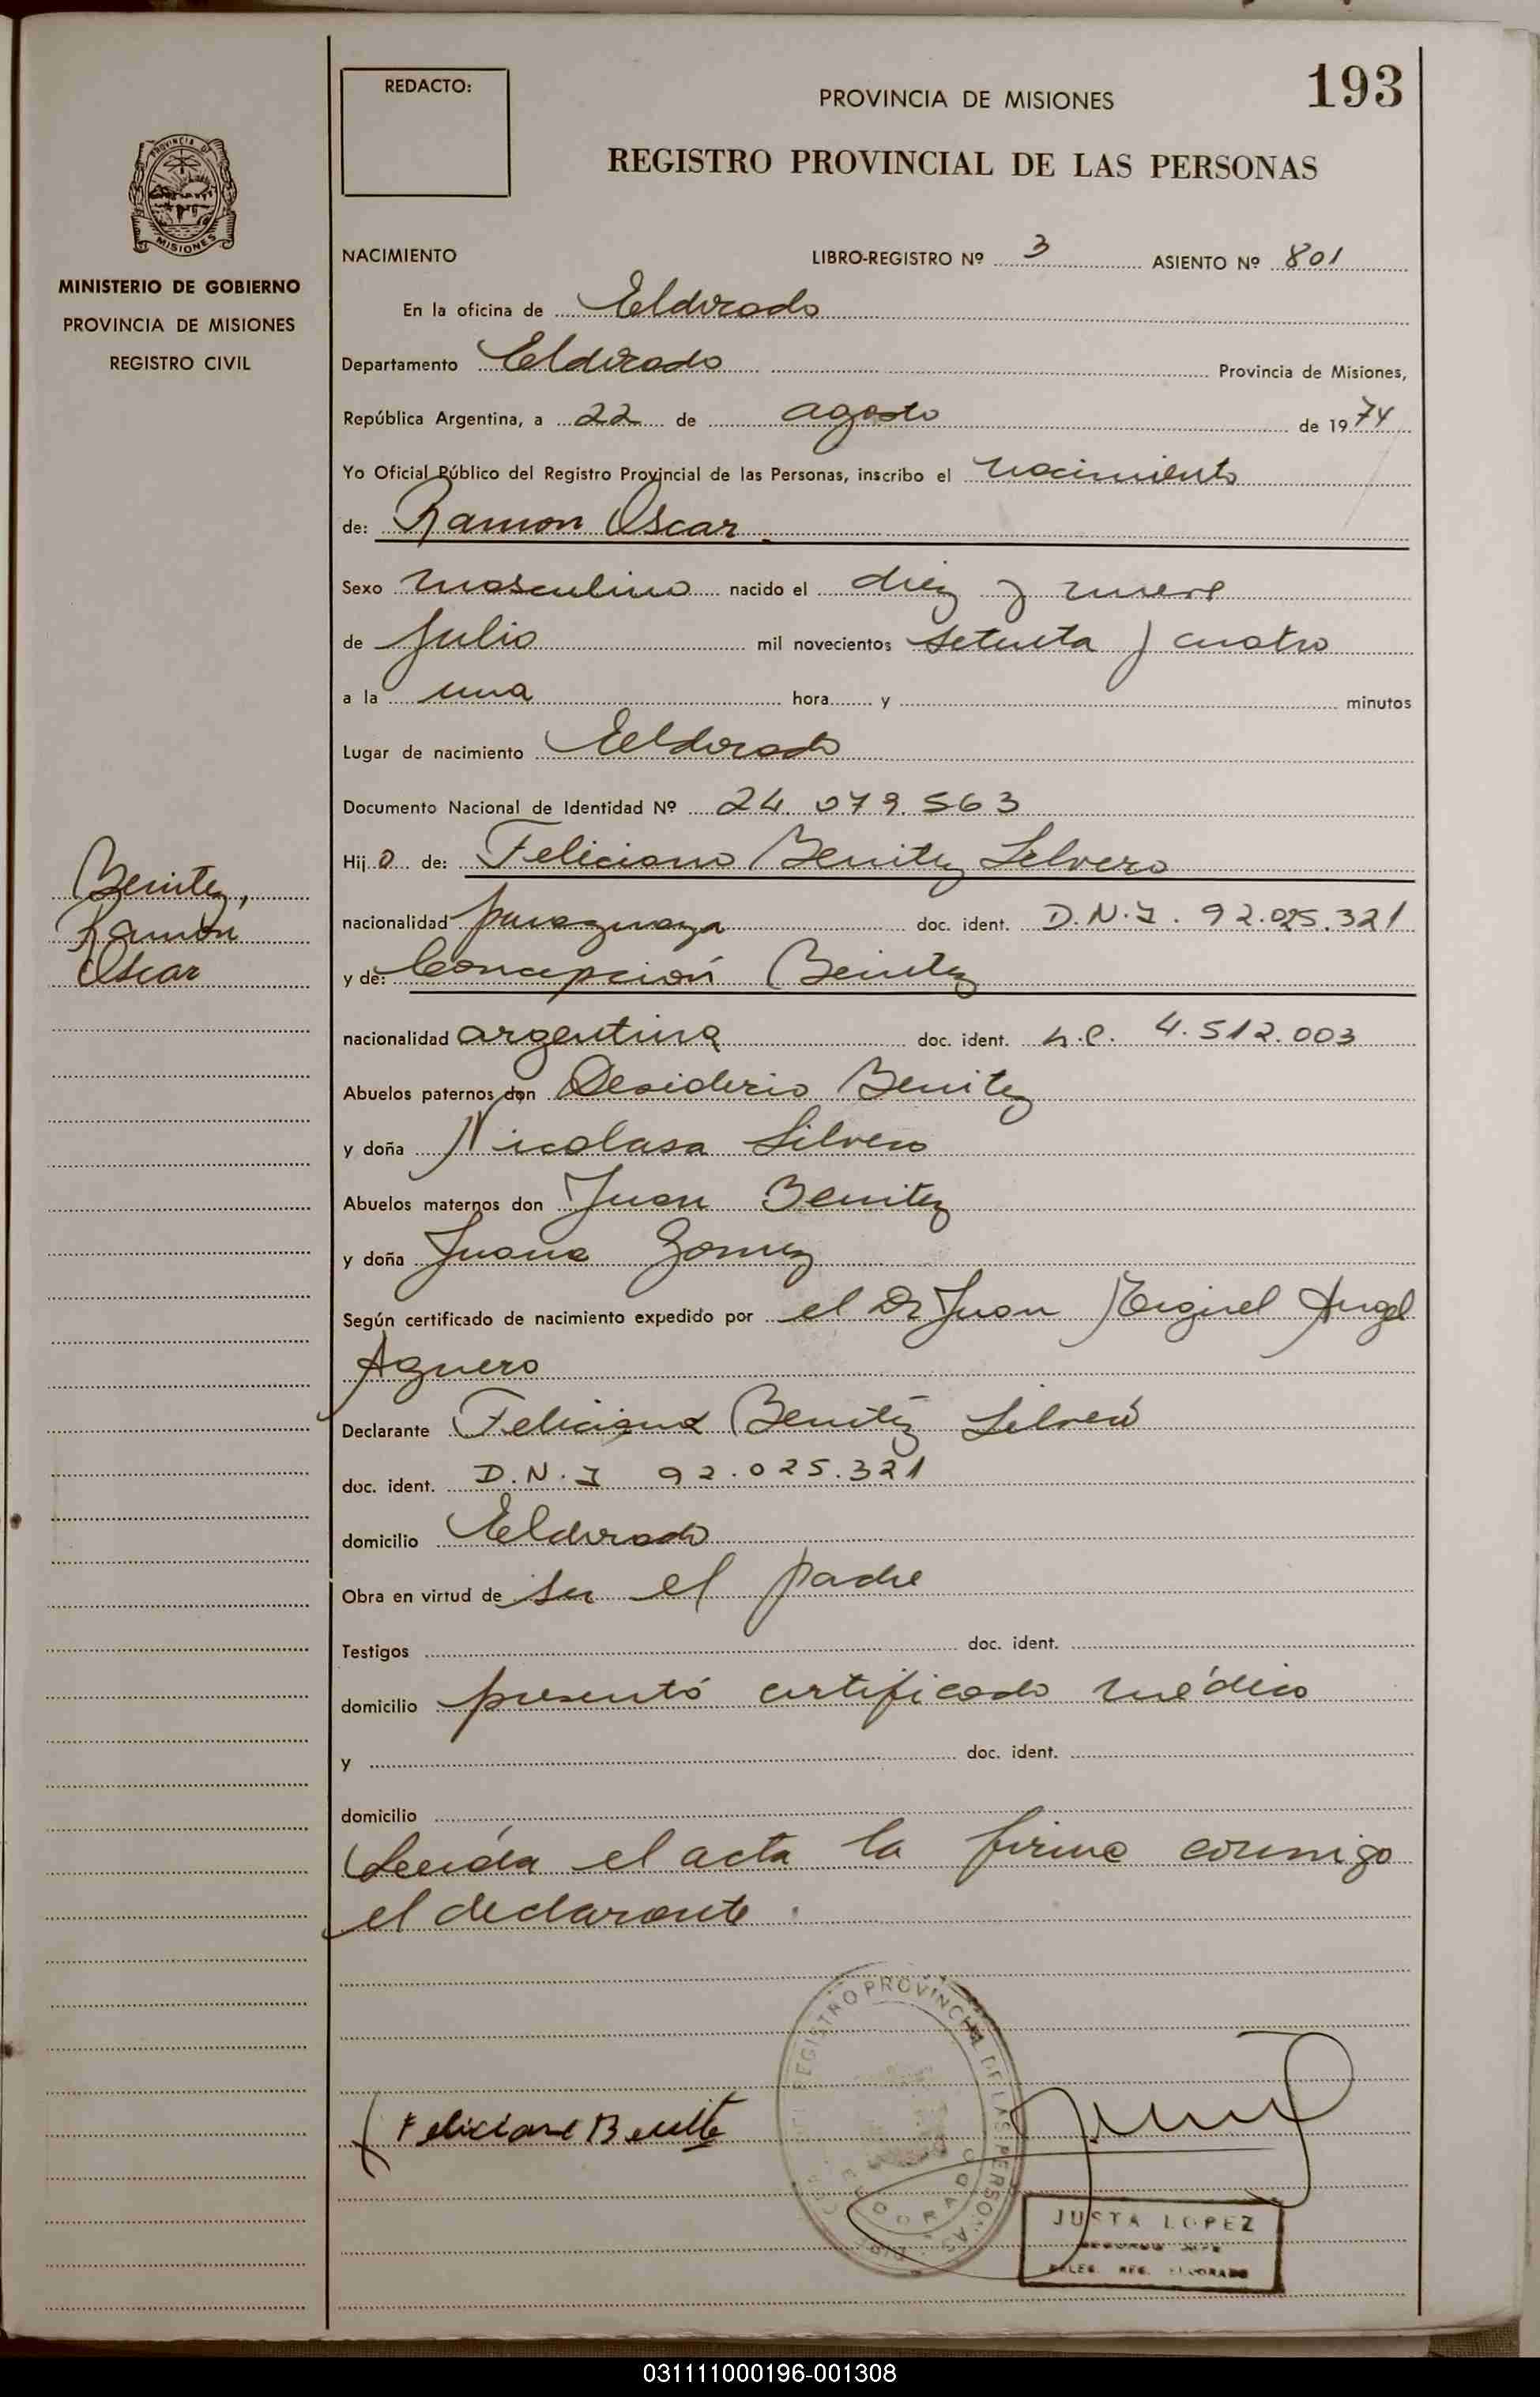 193
REDACTO:
PROVINCIA DE MISIONES
REGISTRO PROVINCIAL DE LAS PERSONAS
PROVINCIA DE
MISIONES
MINISTERIO DE GOBIERNO
PROVINCIA DE MISIONES
REGISTRO CIVIL
NACIMIENTO LIBRO-REGISTRO Nº 3 ASIENTO Nº 801
En la oficina de Eldorado
Departamento Eldorado Provincia de Misiones,
República Argentina, a 22 de agosto de 1974
Yo Oficial Público del Registro Provincial de las Personas, inscribo el nacimiento
de: Ramon Oscar.
Sexo masculino nacido el diez y nueve
de Julio mil novecientos setenta y cuatro
a la una hora y minutos
Lugar de nacimiento Eldorado
Documento Nacional de Identidad Nº 24.079.563
Hijo de: Feliciano Benitez Silvero
Benitez,
Ramón
Oscar
nacionalidad paraguaya doc. ident. D.N.I. 92.025.321
y de: Concepción Benitez
nacionalidad argentina doc. ident. L.C. 4.512.003
Abuelos paternos don Desiderio Benitez
y doña Nicolasa Silvero
Abuelos maternos don Juan Benitez
y doña Juana Gomez
Según certificado de nacimiento expedido por el Dr Juan Miguel Angel
Aguero
Declarante Feliciano Benitez Silvero
doc. ident. D.N.I 92.025.321
domicilio Eldorado
Obra en virtud de ser el padre
Testigos doc. ident.
domicilio presentó certificado médico
y doc. ident.
domicilio
Leída el acta la firma conmigo
el declarante.
REGISTRO PROVINCIAL DE LAS PERSONAS
ELDORADO
Feliciano Benite
JUSTA LOPEZ
DELEG. REG. ELDORADO
031111000196-001308